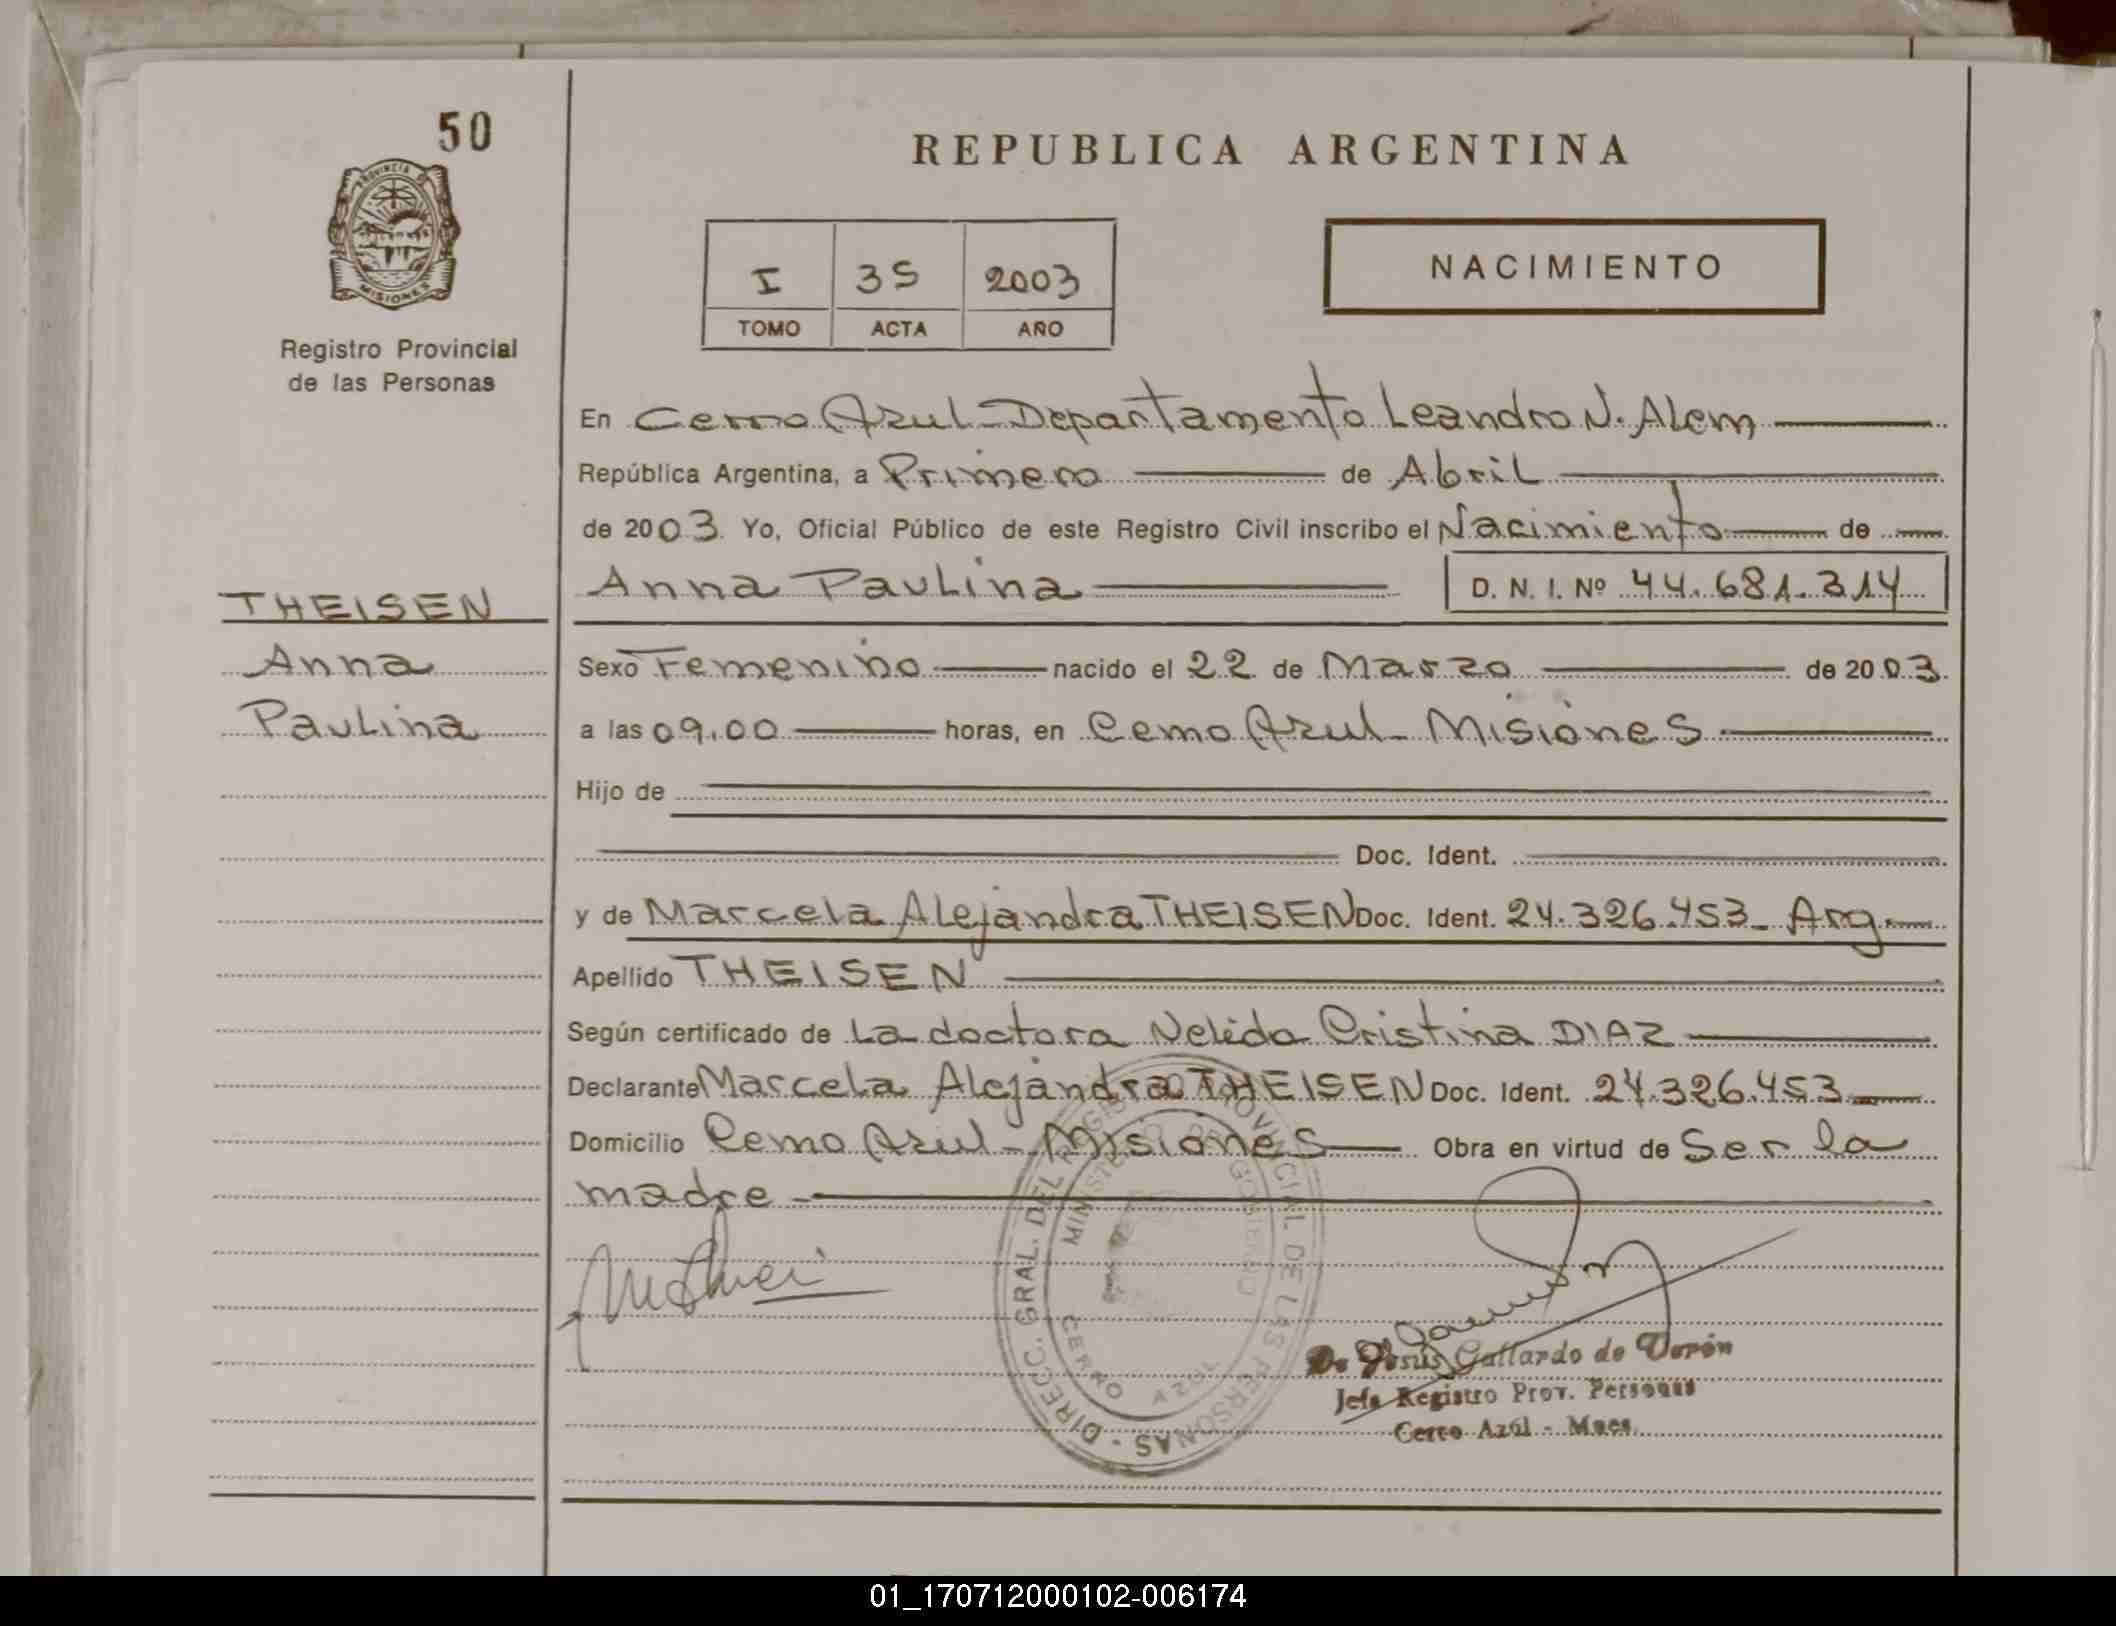 50
PROVINCIA DE
MISIONES
Registro Provincial
de las Personas
REPUBLICA ARGENTINA
I 35 2003
TOMO ACTA AÑO
NACIMIENTO
En Cerro Azul - Departamento Leandro N. Alem
República Argentina, a Primero de Abril
de 2003 Yo, Oficial Público de este Registro Civil inscribo el Nacimiento de
Anna Paulina D. N. I. Nº 44.681.314
THEISEN
Anna
Paulina
Sexo Femenino nacido el 22 de Marzo de 2003
a las 09.00 horas, en Cerro Azul - Misiones
Hijo de
Doc. Ident.
y de Marcela Alejandra THEISEN Doc. Ident. 24.326.453 - Arg.
Apellido THEISEN
Según certificado de La doctora Nelida Cristina DIAZ
Declarante Marcela Alejandra THEISEN Doc. Ident. 24.326.453
Domicilio Cerro Azul - Misiones Obra en virtud de Ser la
madre
DIRECC. GRAL. DEL REGISTRO PROVINCIAL DE LAS PERSONAS
MINISTERIO DE GOBIERNO
CERRO AZUL
De Jesús Gallardo de Verón
Jefa Registro Prov. Personas
Cerro Azúl - Mnes.
01_170712000102-006174